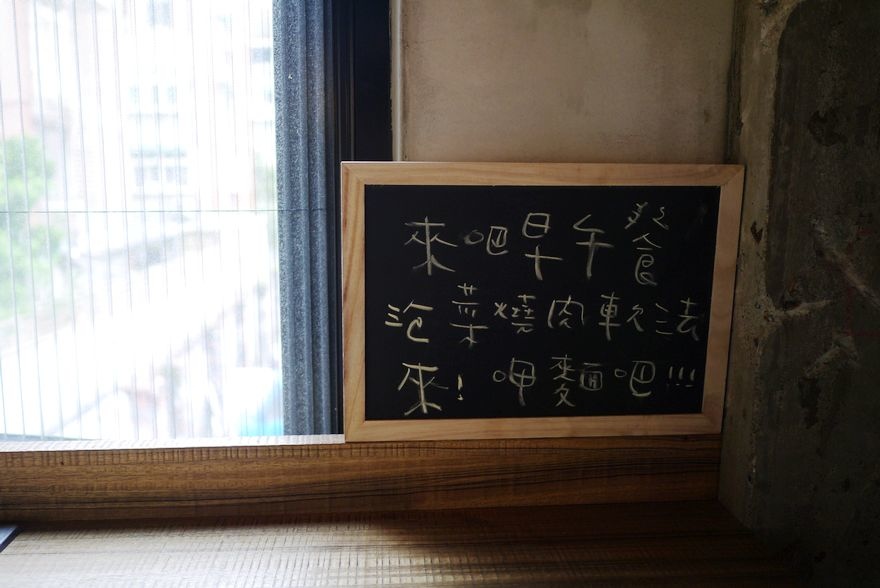 來吧早午餐
泡菜燒肉軟法
來!呷麵吧!!!